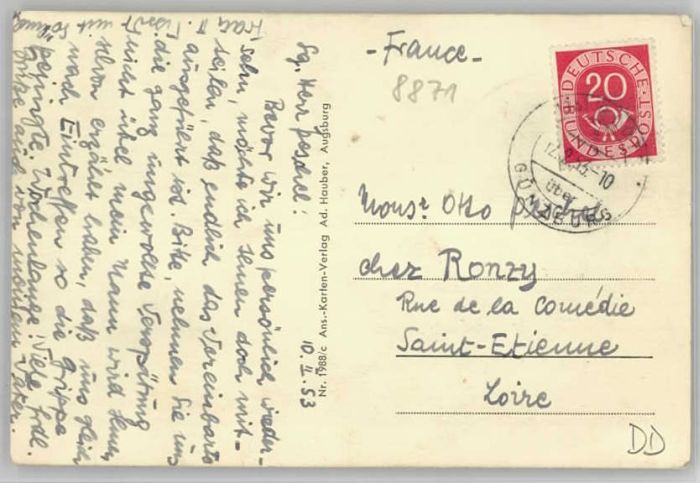 - France -
8871
DEUTSCHE BUNDESPOST
20
über
GÜNZBURG
Monsr Otto
chez Ronzy
Rue de la Comédie
Saint-Etienne
Loire
DD
Nr. 1988/c Ans.-Karten-Verlag Ad. Hauber, Augsburg
10. II. 53
Sg. Herr
Bevor wir uns persönlich wieder-
sehn, möchte ich Ihnen doch mit-
teilen, daß endlich das Vereinbarte
ausgeführt ist. Bitte, nehmen Sie uns
die ganz ungewollte Verspätung
nicht übel mein Mann wird Ihnen
schon erzählt haben, daß uns gleich
nach Eintreffen so die Grippe
wochenlange! Viele frdl.
Grüße auch von meinem Vater.